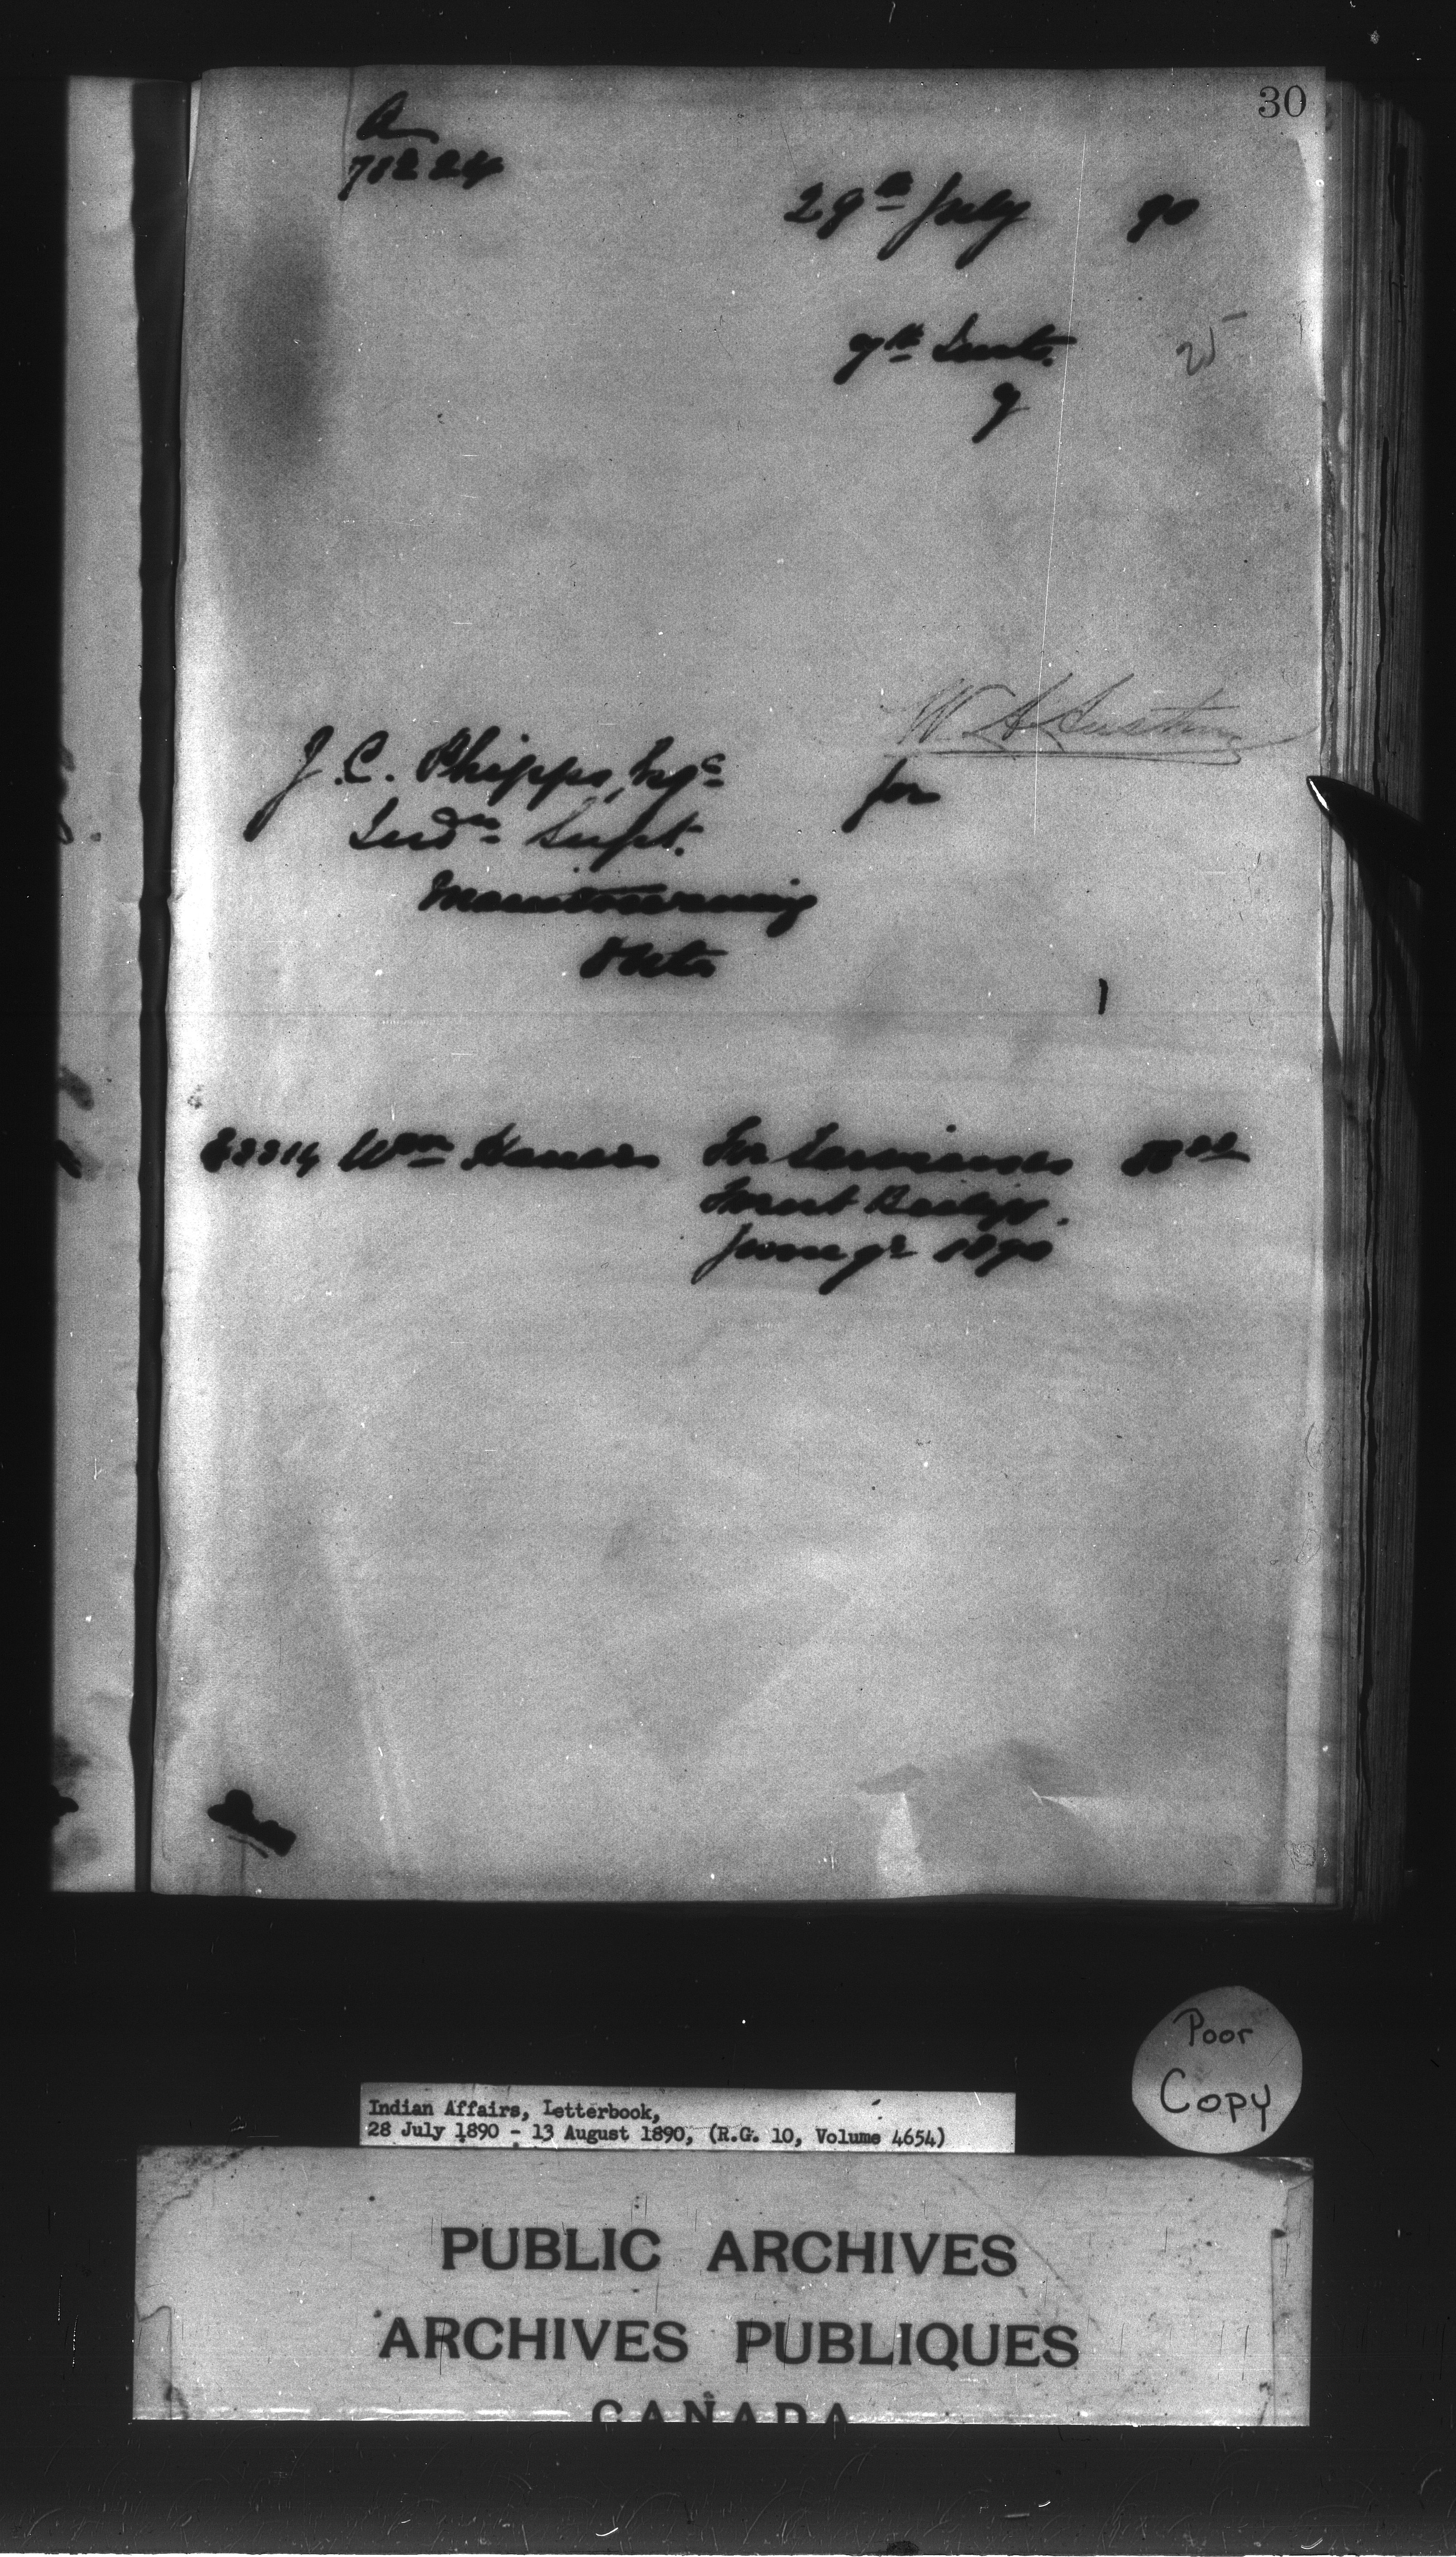 30
A
71224
29th July 90
9th Insts.
9
25
W. A. Austin
J. C. Phipps, Esqe
for
Indn Supt.
Manitowaning
Onto
Wm
For Services
Forest
June qr 1890
Poor
Copy
Indian Affairs, Letterbook,
28 July 1890 - 13 August 1890, (R.G. 10, Volume 4654)
PUBLIC ARCHIVES
ARCHIVES PUBLIQUES
CANADA